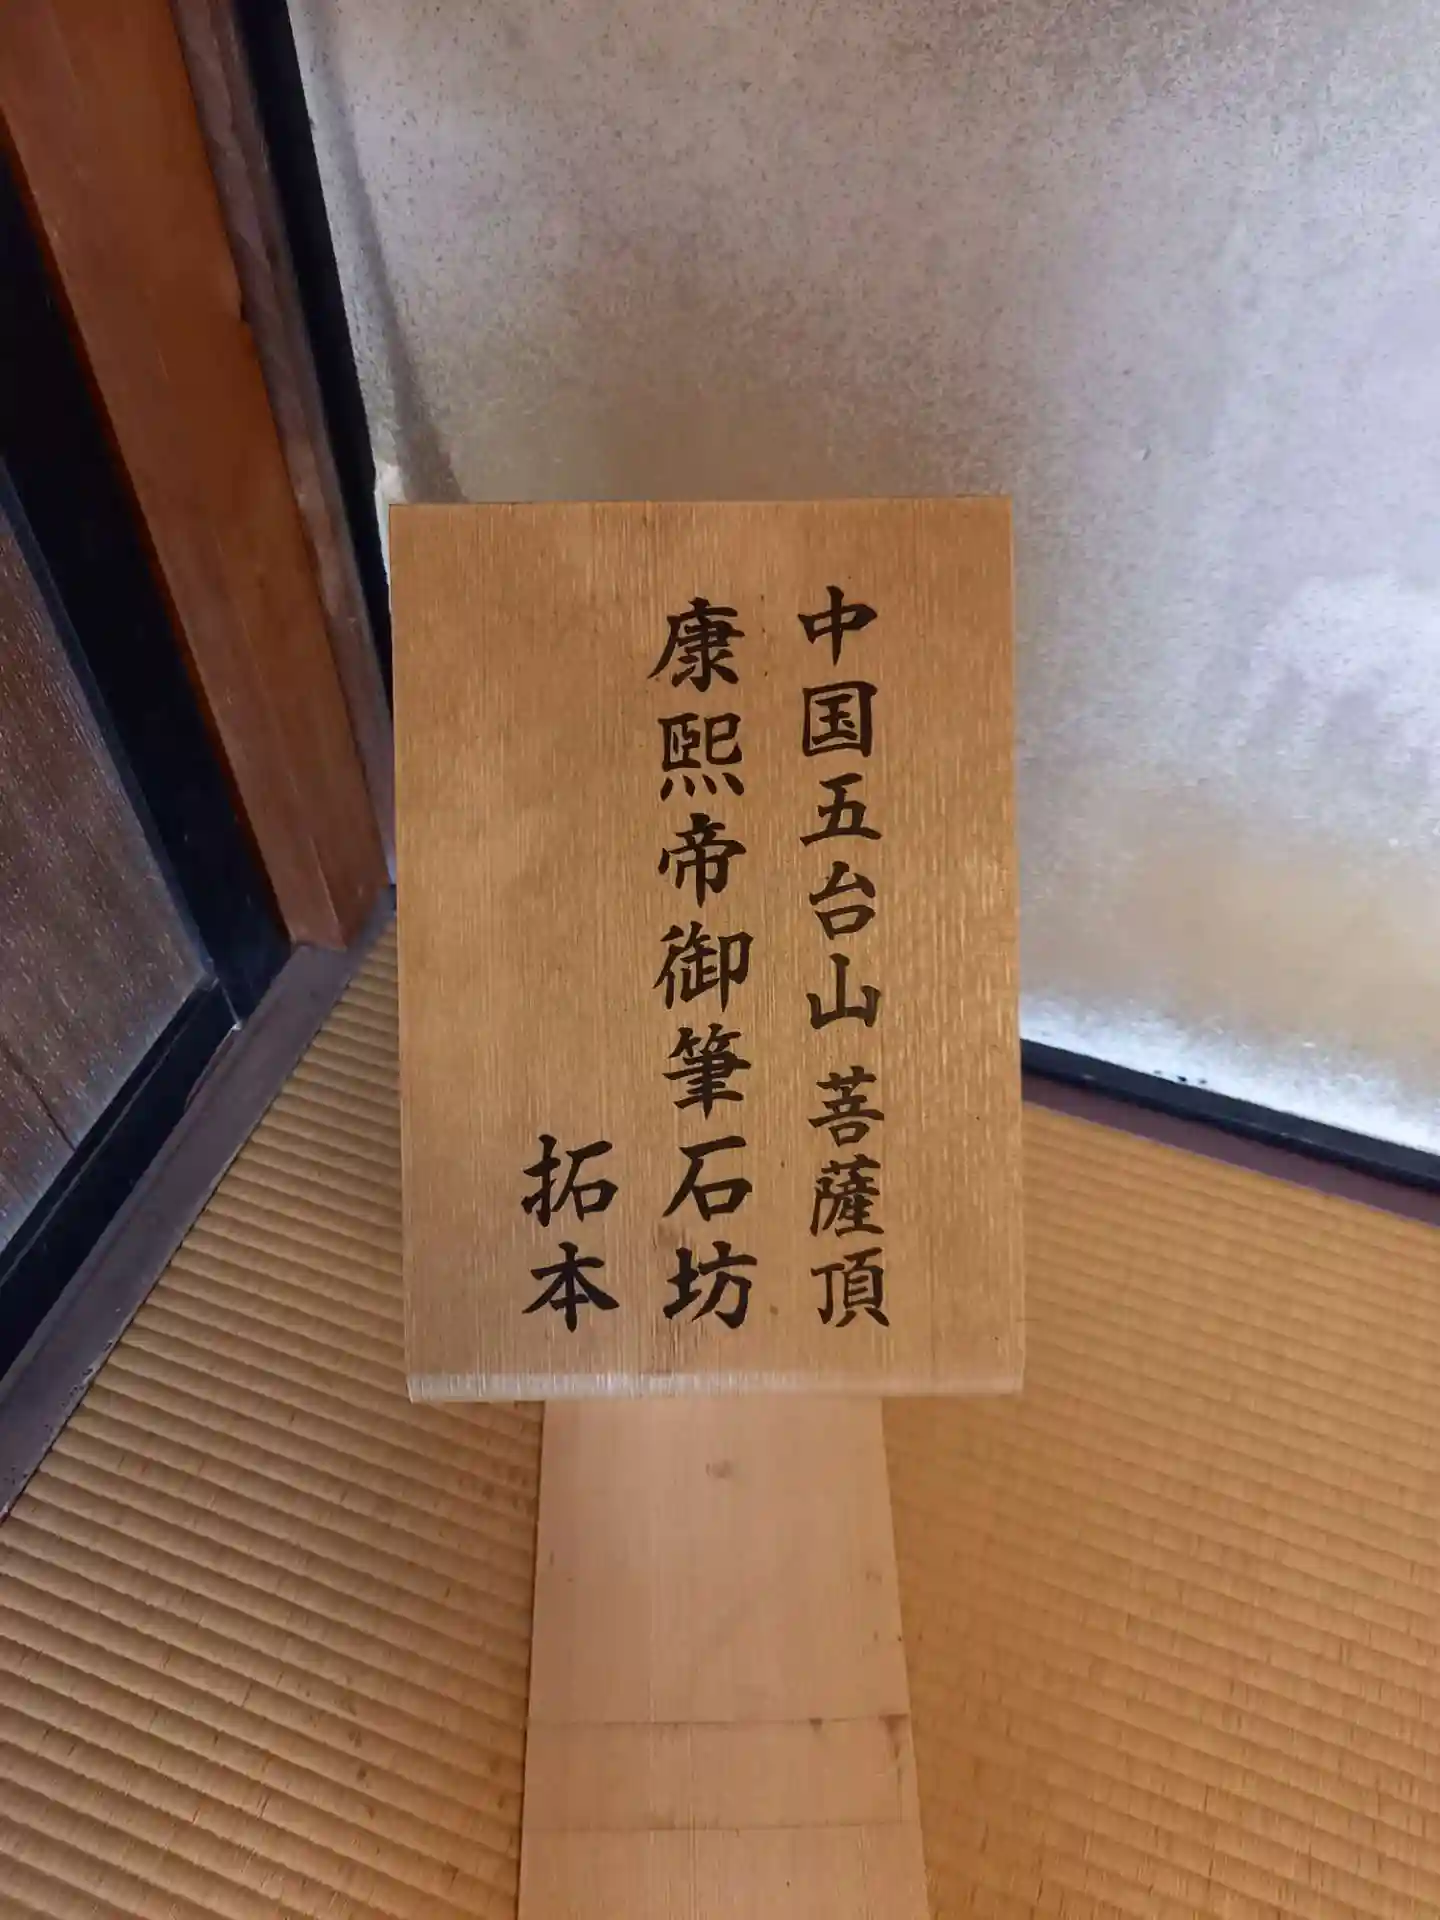 中国五台山 菩薩頂
康熙帝御筆石坊
拓本